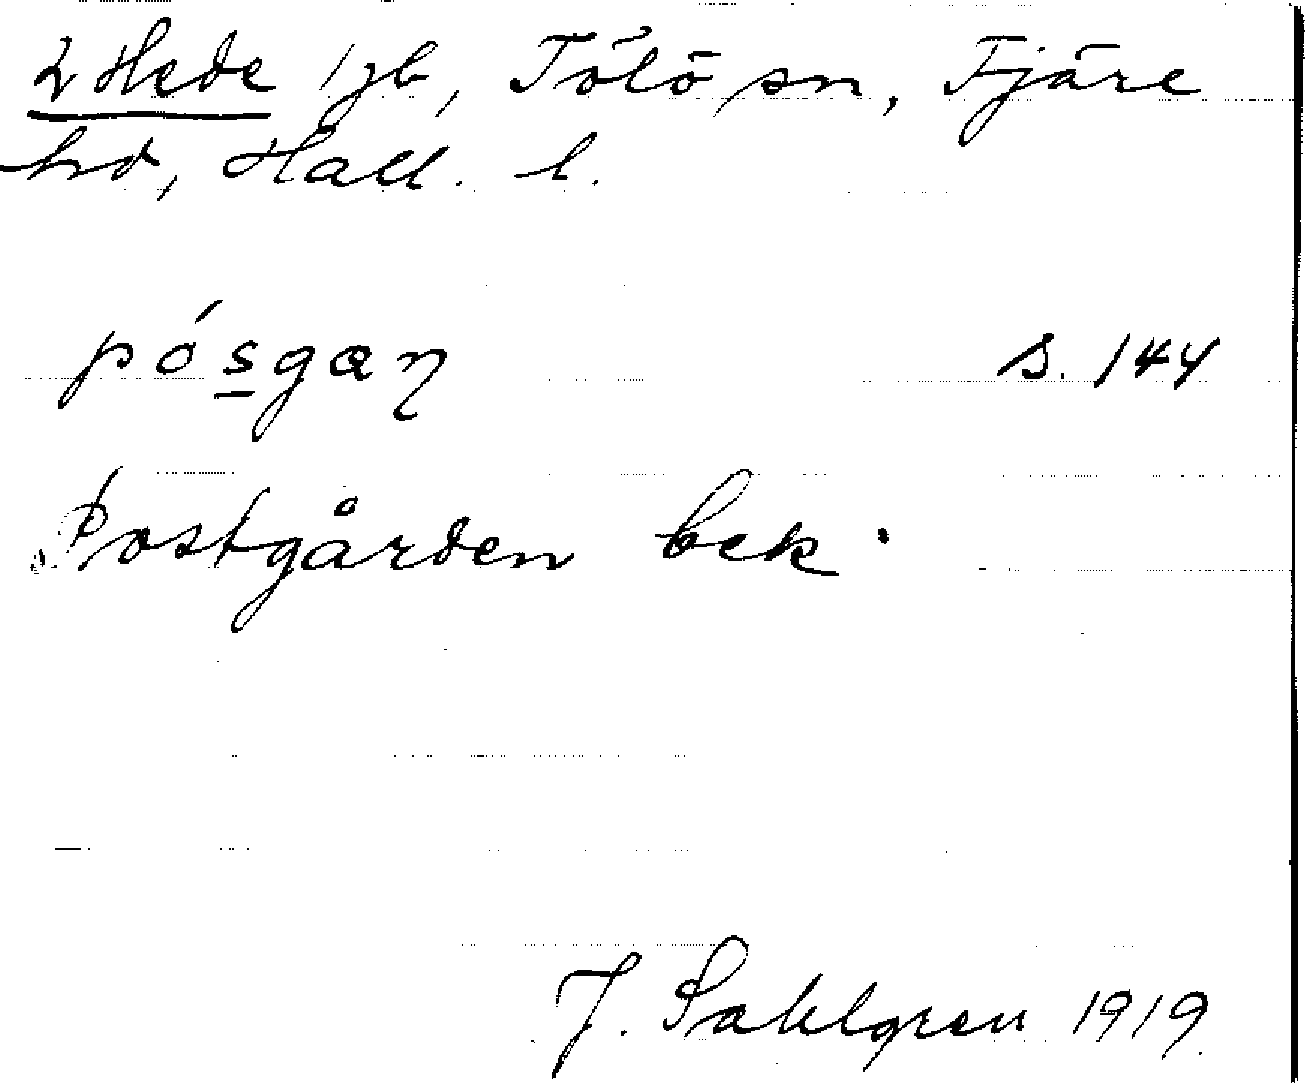 2 Hede 1 gb, Tölö sn, Fjäre
hd, Hall. l.
pósgaŋ s. 144
Postgården bek.
J. Sahlgren 1919